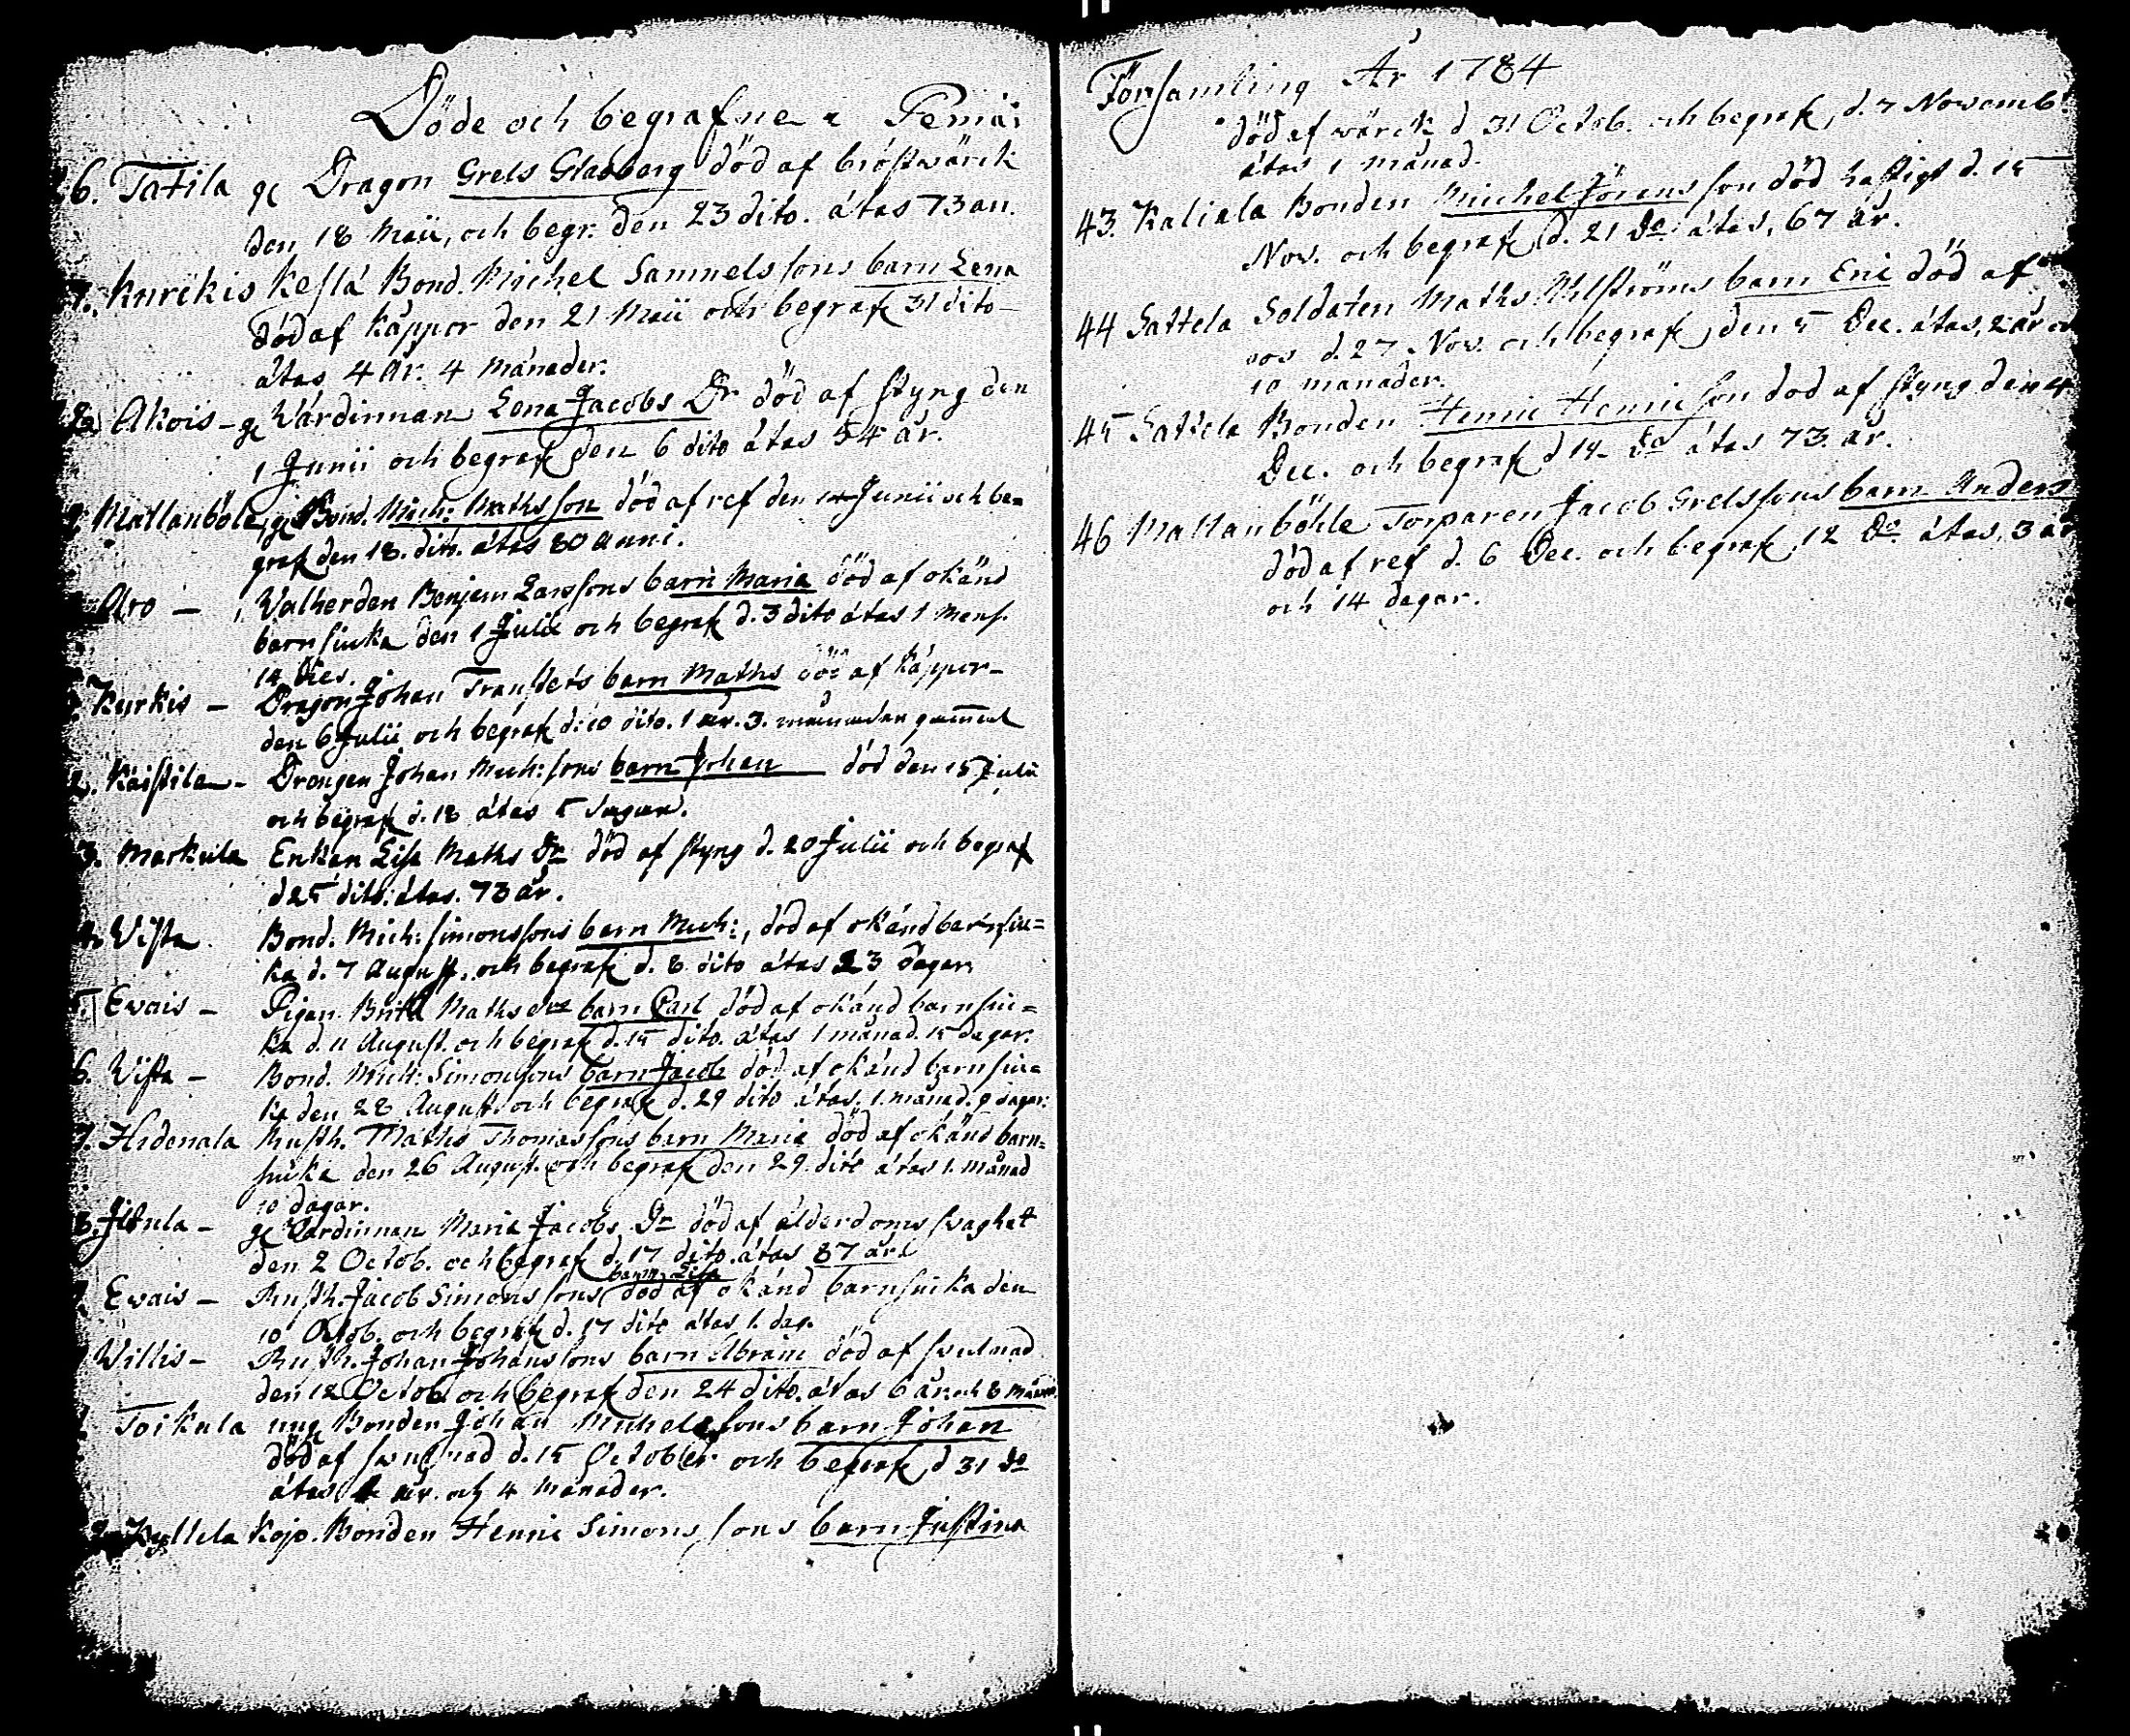 Döde och begrafne i Pemäi
26. Tatila gl Dragon Grels Gladberg död af bröstwärck
den 18 Maii, och begr. den 23 dito. åtas 73 an.
7. Kurckis Keslä Bond. Michel Samuelssons barn Lena
död af kåppor den 21 Maii och begraf 31 dito
åtas 4 år. 4 månader.
28 Akois - gl Wärdinnan Lena Jacobs Dr död af styng den
1 Junii och begraf den 6 dito åtas 54 år.
9. Mattanböle, gl Bond. Mich: Mathsson död af ref den 14 Junii och be=
graf den 18. dito. åtas 80 anni.
Aro — Walherden Benjem Larssons barn Maria död af okänd
barnsiuka den 1 Julii och begraf d. 3 dito åtas 1 mens.
14 Dies.
Kurkis — Dragon Johan Transtets barn Maths död af kåppor
den 6 Julii och begraf d: 10 dito. 1 år. 3. månader gammal
2. Käistila - Drengen Johan Mich:sons barn Johan död den 15 Julii
och begraf d. 18 åtas 5 dagar.
3. Markula Enkan Lisa Maths Dr död af styng d. 20 Julii och begraf
d 25 dito: åtas. 73 år.
4. Wista Bond. Mich: Simonssons barn Mich:, död af okänd barnsiu=
ka d. 7 August. och begraf d. 8 dito åtas 23 dagar
5. Ewais — Pigan Brita Maths dr barn Carl död af okänd barnsiu=
ka d. 11 August. och begraf d. 15 dito. åtas 1 månad. 15 dagar.
6. Wista — Bond. Mich: Simonssons barn Jacob död af okänd barnsiu=
ka den 28 August. och begraf d. 29 dito åtas. 1. månad. 9 dagar:
7. Hidenala Rusth. Maths Thomassons barn Maria död af okänd barn=
siuka den 26 August. och begraf den 29. dito åtas 1. månad
10 dagar.
8. Jitula — gl Wärdinnan Maria Jacobs Dr död af ålderdoms swaghet
den 2 Octob. och begraf d. 17 dito. åtas 87 år
barn Lisa
Ewais — Rusth. Jacob Simonssons död af okänd barnsiuka den
10 Octob. och begraf d. 17 dito åtas 1. dag.
Willis — Rusth. Johan Johanssons barn Abram död af swulnad
den 12 Octob. och begraf den 24 dito. åtas 6 år och 8 mån
Toikula ung Bonden Johan Michelssons barn Johan
död af swulnad d. 15 October och begraf d 31 do
åtas år och 4 månader.
2. Kyllela Kojo. Bonden Henric Simonssons barn Justina
Församling År 1784
död af wärck d 31 Octob. och begraf, d. 7 Novemb:
åtas 1 månad.
43. Kaliala Bonden Michel Jörensson död hastigt d. 15
Nov. och begraf d. 21 do åtas, 67 år.
44 Sattela Soldaten Maths Ahlströms barn Eric död af
ros d. 27 Nov. och begraf den 5 Dec. åtas, 2 år och
10 månader.
45 Sattela Bonden Henric Henricsson död af styng den 4
Dec. och begraf d 14 do åtas 73 år.
46 Mattanböhle Torparen Jacob Grelssons barn Anders
död af ref d. 6 Dec. och begraf, 12 do åtas, 3 år
och 14 dagar.